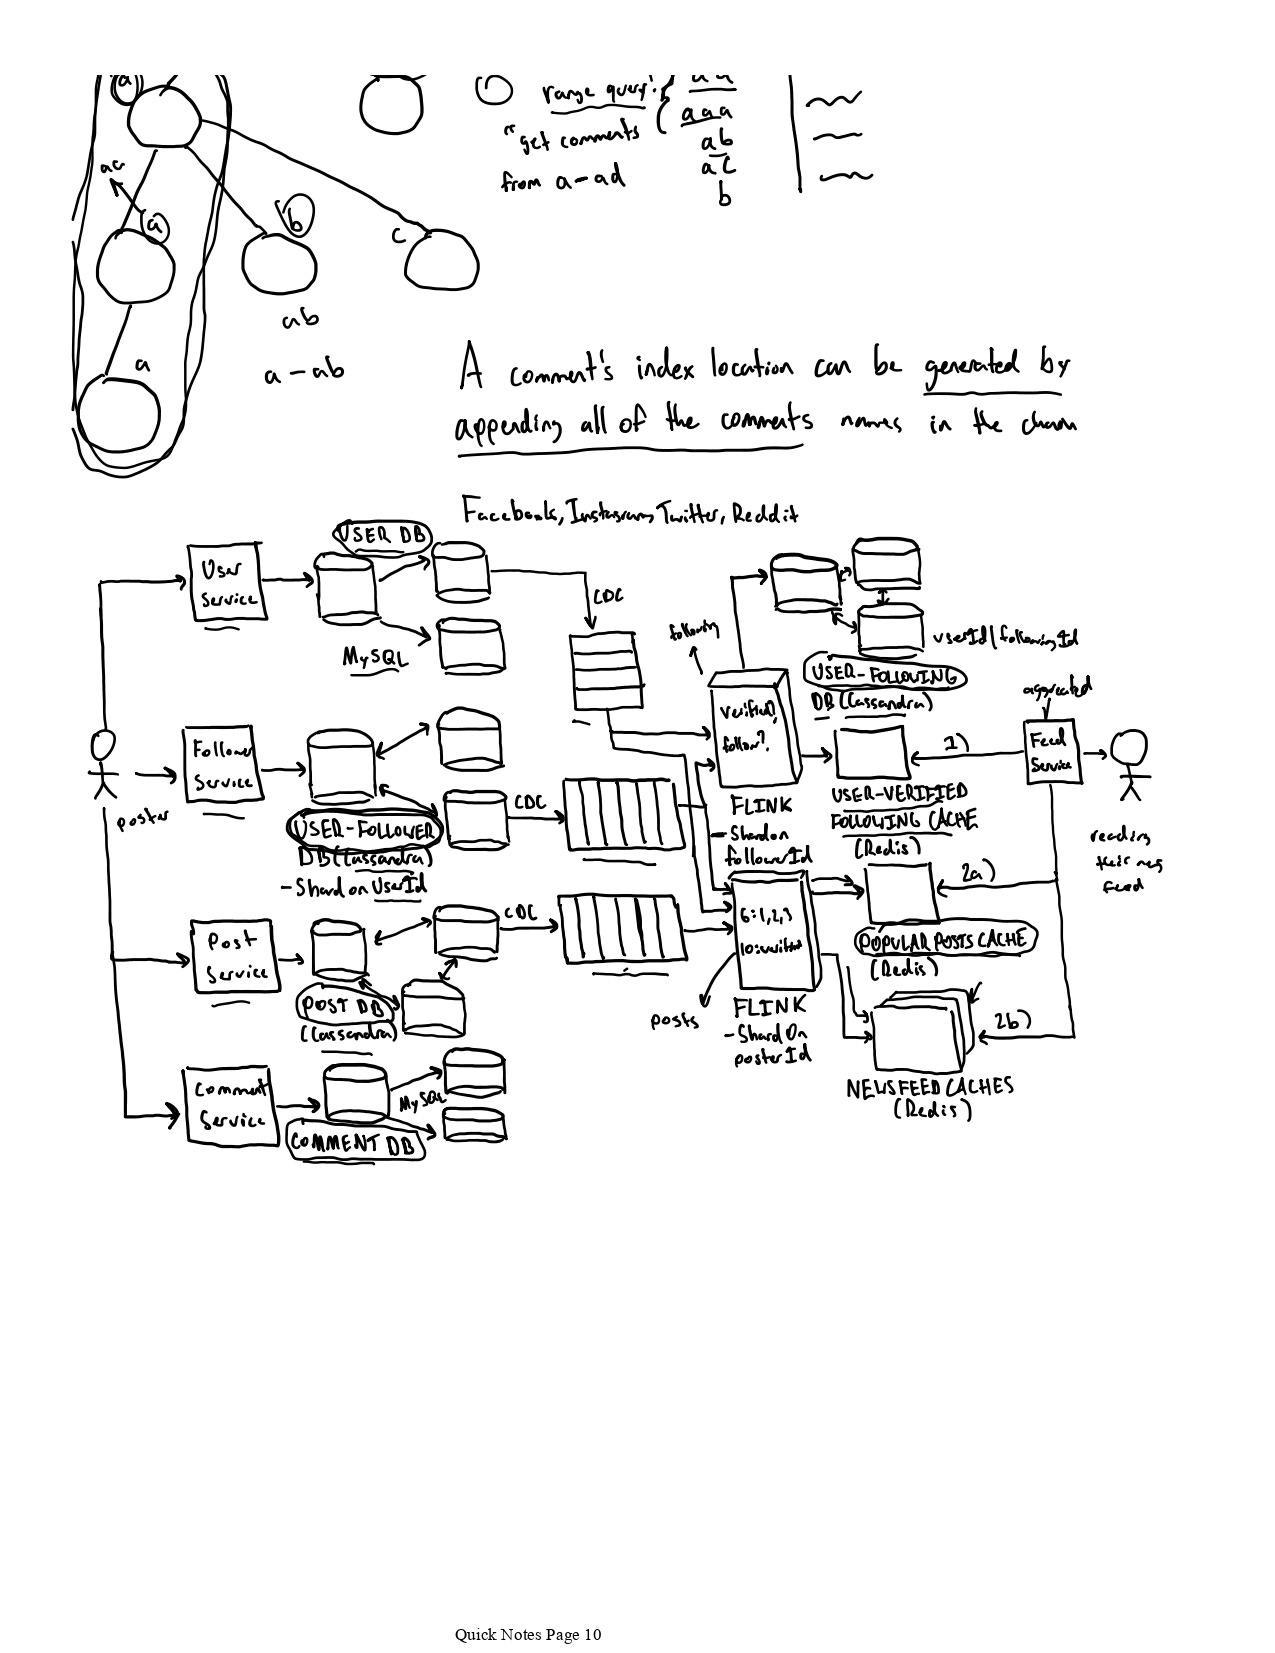 a
range query:
aa
aaa
"get comments
ab
from a-ad
ac
b
ac
a
b
c
ab
a
a-ab
A comment's index location can be generated by
appending all of the comments names in the chain
Facebook, Instagram, Twitter, Reddit
USER DB
User
Service
MySQL
CDC
following
userId/followingId
USER-FOLLOWING
DB (Cassandra)
verified?,
follow?.
aggregated
Feed
Service
1)
Follower
Service
poster
USER-FOLLOWER
DB (Cassandra)
- Shard on UserId
CDC
FLINK
- Shard on
followerId
USER-VERIFIED
FOLLOWING CACHE
(Redis)
reading
their news
feed
2a)
Post
Service
POST DB
(Cassandra)
CDC
6:1,2,3
10:verified
posts
FLINK
- Shard On
posterId
POPULAR POSTS CACHE
(Redis)
2b)
NEWSFEED CACHES
(Redis)
Comment
Service
MySQL
COMMENT DB
Quick Notes Page 10